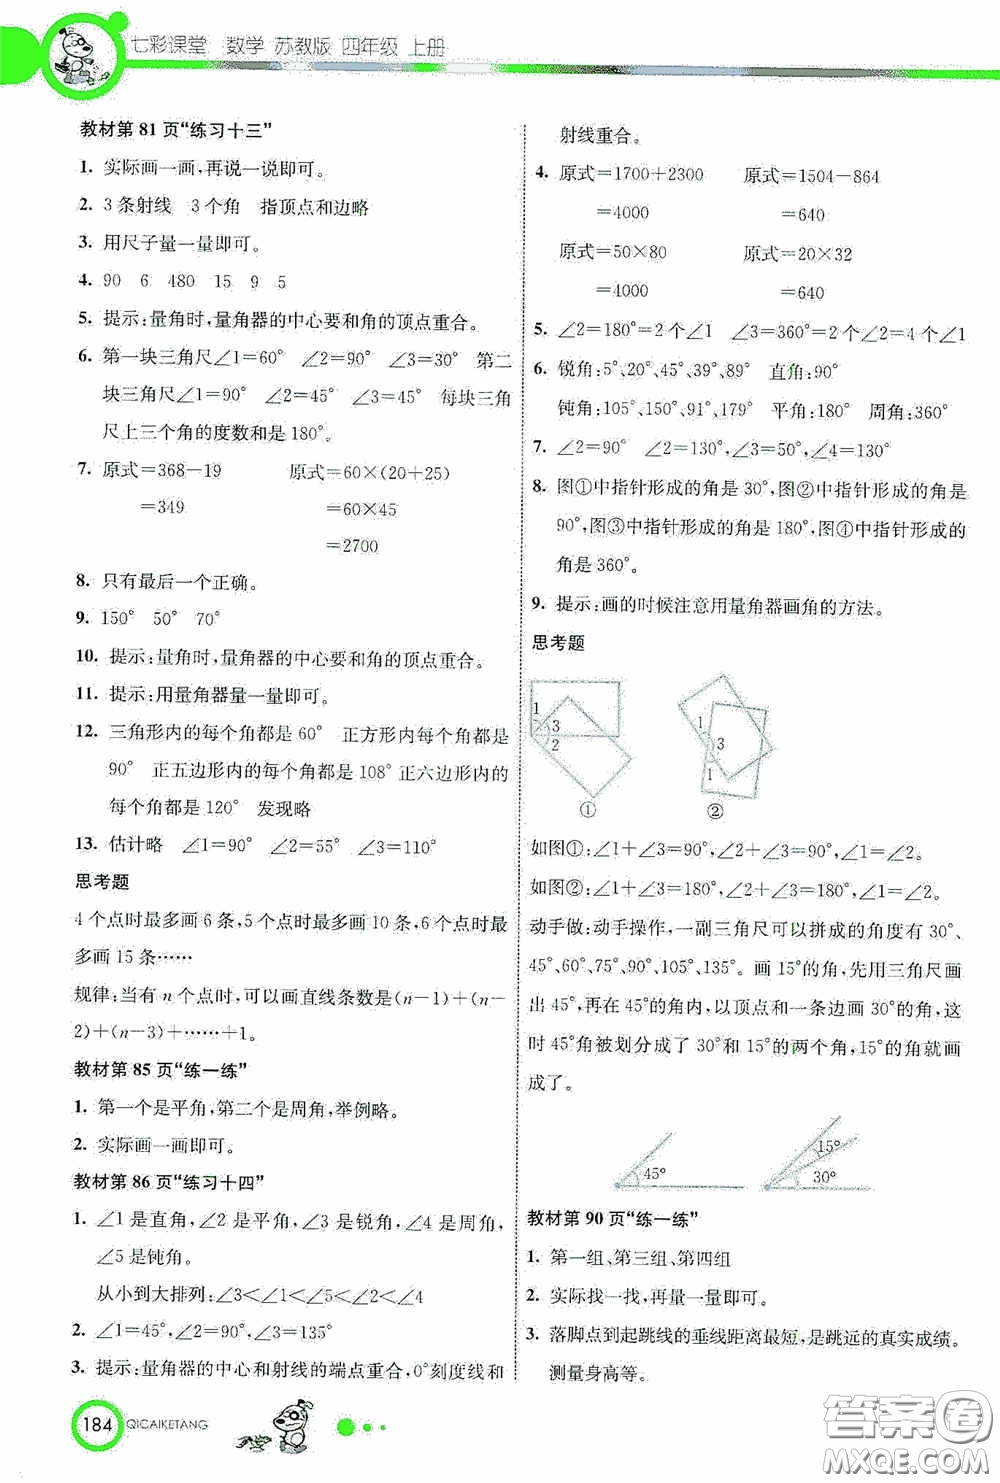 七彩课堂 数学 苏教版 四年级 上册
教材第 81 页“练习十三”
1. 实际画一画,再说一说即可。
2. 3 条射线 3 个角 指顶点和边略
3. 用尺子量一量即可。
4. 90 6 480 15 9 5
5. 提示:量角时,量角器的中心要和角的顶点重合。
6. 第一块三角尺∠1=60° ∠2=90° ∠3=30° 第二
块三角尺∠1=90° ∠2=45° ∠3=45° 每块三角
尺上三个角的度数和是 180°。
7. 原式=368-19 原式=60×(20+25)
=349 =60×45
=2700
8. 只有最后一个正确。
9. 150° 50° 70°
10. 提示:量角时,量角器的中心要和角的顶点重合。
11. 提示:用量角器量一量即可。
12. 三角形内的每个角都是 60° 正方形内每个角都是
90° 正五边形内的每个角都是 108° 正六边形内的
每个角都是 120° 发现略
13. 估计略 ∠1=90° ∠2=55° ∠3=110°
思考题
4 个点时最多画 6 条,5 个点时最多画 10 条,6 个点时最
多画 15 条……
规律:当有 n 个点时,可以画直线条数是(n-1)+(n-
2)+(n-3)+……+1。
教材第 85 页“练一练”
1. 第一个是平角,第二个是周角,举例略。
2. 实际画一画即可。
教材第 86 页“练习十四”
1. ∠1 是直角,∠2 是平角,∠3 是锐角,∠4 是周角,
∠5 是钝角。
从小到大排列:∠3<∠1<∠5<∠2<∠4
2. ∠1=45°,∠2=90°,∠3=135°
3. 提示:量角器的中心和射线的端点重合,0°刻度线和
射线重合。
4. 原式=1700+2300 原式=1504-864
=4000 =640
原式=50×80 原式=20×32
=4000 =640
5. ∠2=180°=2 个∠1 ∠3=360°=2 个∠2=4 个∠1
6. 锐角:5°、20°、45°、39°、89° 直角:90°
钝角:105°、150°、91°、179° 平角:180° 周角:360°
7. ∠2=90° ∠2=130°,∠3=50°,∠4=130°
8. 图①中指针形成的角是 30°,图②中指针形成的角是
90°,图③中指针形成的角是 180°,图④中指针形成的
角是 360°。
9. 提示:画的时候注意用量角器画角的方法。
思考题
1 3 2
1 3 1
① ②
如图①:∠1+∠3=90°,∠2+∠3=90°,∠1=∠2。
如图②:∠1+∠3=180°,∠2+∠3=180°,∠1=∠2。
动手做:动手操作,一副三角尺可以拼成的角度有 30°、
45°、60°、75°、90°、105°、135°。画 15°的角,先用三角尺画
出 45°,再在 45°的角内,以顶点和一条边画 30°的角,这
时 45°角被划分成了 30°和 15°的两个角,15°的角就画
成了。
45° 15° 30°
教材第 90 页“练一练”
1. 第一组、第三组、第四组
2. 实际找一找,再量一量即可。
3. 落脚点到起跳线的垂线距离最短,是跳远的真实成绩。
测量身高等。
184 QICAIKETANG
答案卷
MXQE.COM